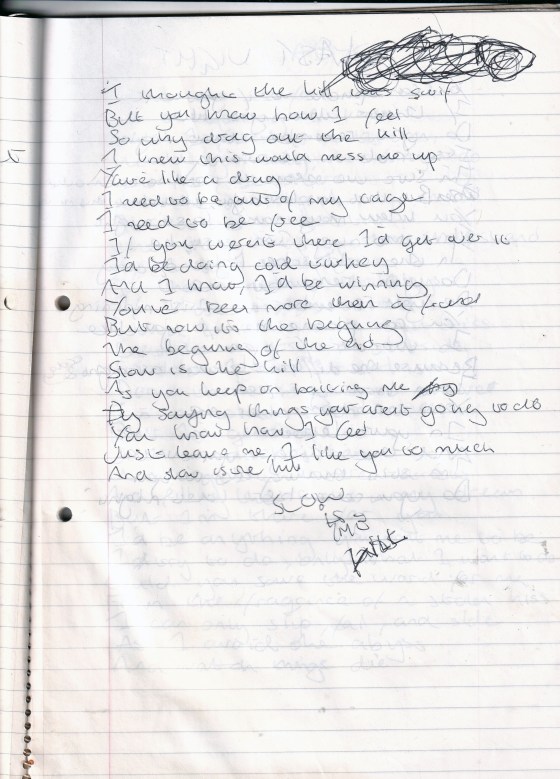 I thought the kill was swift
But you know how I feel
So why drag out the kill
I knew this would mess me up
You're like a drug
I need to be out of my cage
I need to be free
If you weren't there I'd get over it
I'd be doing cold turkey
And I know, I'd be winning
You've been more than a friend
But now it's the begining
The begining of the end
Slow is the kill
As you keep on backing me
By saying things you aren't going to do
You know how I feel
Just leave me, I like you too much
And slow is the kill
SLOW
IS
THE
KILL